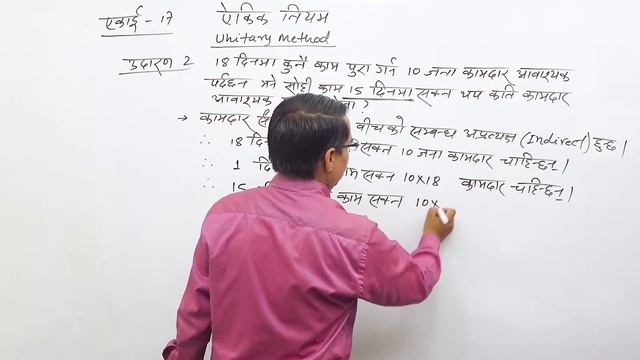 एकाई - 17 ऐकिक नियम
Unitary Method
उदाहरण 2 18 दिनमा कुनै काम पुरा गर्न 10 जना कामदार आवश्यक
पर्दछन भने सोही काम 15 दिनमा सक्न थप कति कामदार
आवश्यक
→ कामदार बीचको सम्बन्ध अप्रत्यक्ष (Indirect) हुन्छ।
∴ 18 सक्न 10 जना कामदार चाहिन्छन्।
∴ 1 सक्न 10×18 कामदार चाहिन्छन्।
∴ 15 काम सक्न 10×